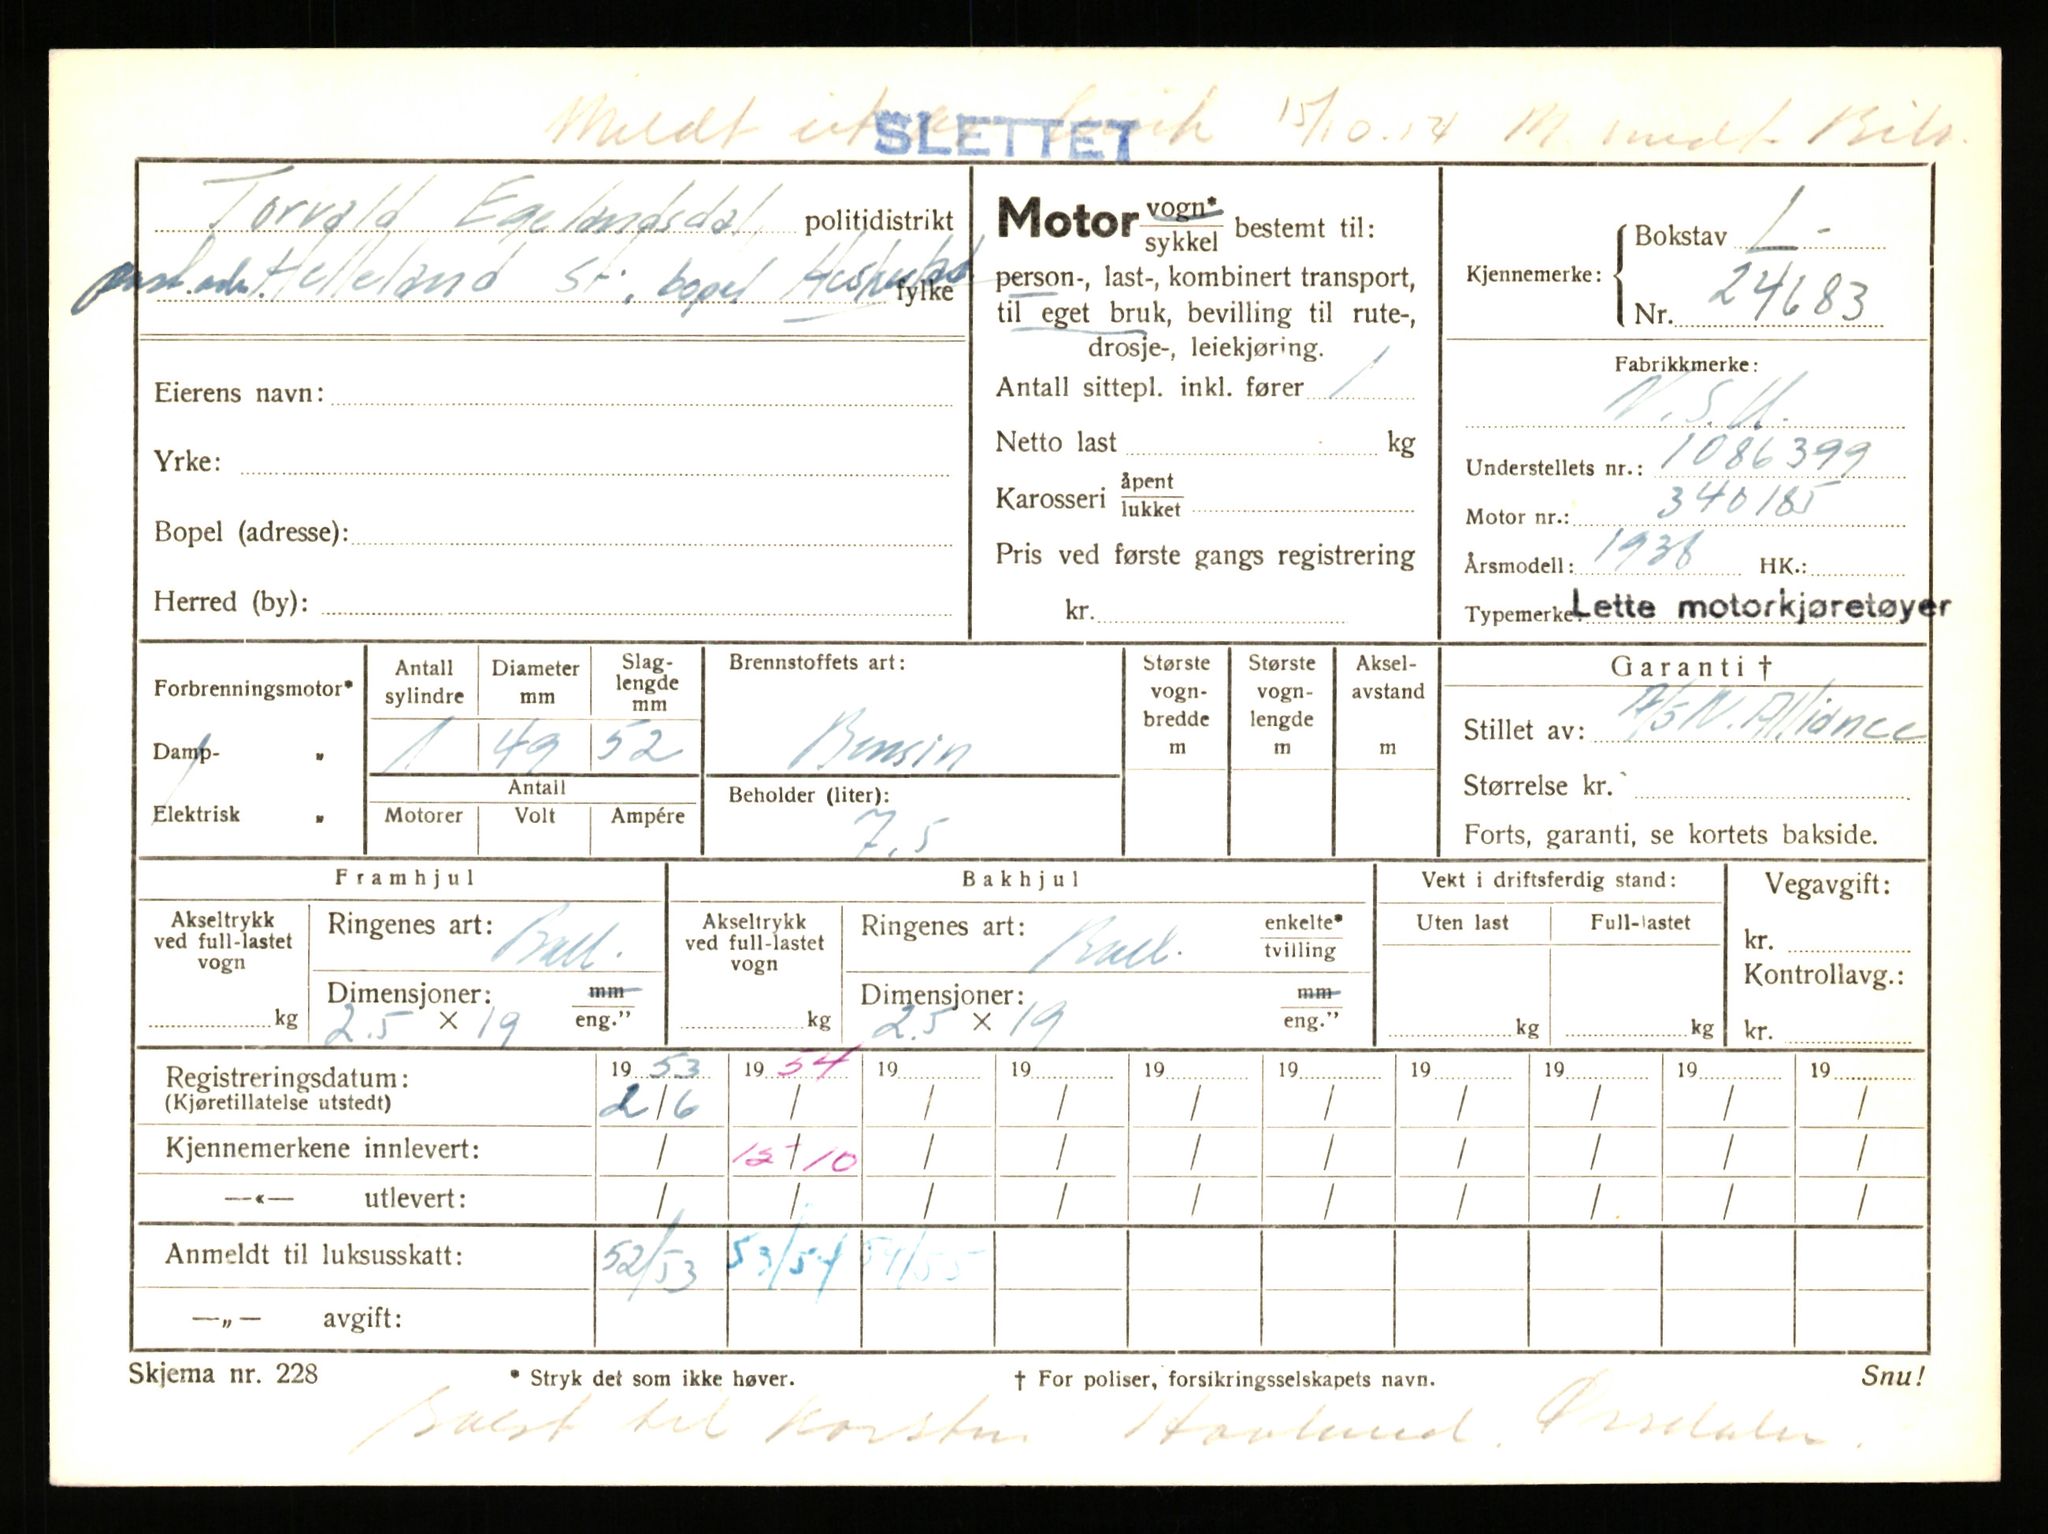 Meldt 15/10.54
SLETTET
Torvald Egelandsdal politidistrikt
post.adr. Helleland St., bopel Heskestad fylke
Eierens navn:
Yrke:
Bopel (adresse):
Herred (by):
Motor vogn* sykkel bestemt til:
person-, last-, kombinert transport,
til eget bruk, bevilling til rute-,
drosje-, leiekjøring.
Antall sittepl. inkl. fører 1
Netto last kg
Karosseri åpent lukket
Pris ved første gangs registrering
kr.
Kjennemerke: Bokstav L -
Nr. 24683
Fabrikkmerke:
N.S.U.
Understellets nr.: 1086399
Motor nr.: 340185
Årsmodell: 1938 HK.:
Typemerke: Lette motorkjøretøyer
Forbrenningsmotor*
Damp- „
Elektrisk „
Antall sylindre 1
Diameter mm 49
Slag-lengde mm 52
Antall
Motorer Volt Ampére
Brennstoffets art:
Bensin
Beholder (liter):
7,5
Største vogn-bredde m
Største vogn-lengde m
Aksel-avstand m
Garanti †
Stillet av: A/S N. Alliance
Størrelse kr.
Forts, garanti, se kortets bakside.
Framhjul
Akseltrykk ved full-lastet vogn
kg
Ringenes art: Ball.
Dimensjoner: mm
2.5 × 19 eng."
Bakhjul
Akseltrykk ved full-lastet vogn
kg
Ringenes art: Ball. enkelte* tvilling
Dimensjoner: mm
2.5 × 19 eng."
Vekt i driftsferdig stand:
Uten last Full-lastet
kg kg
Vegavgift:
kr.
Kontrollavg.:
kr.
Registreringsdatum: 19 53 19 54 19 19 19 19 19 19 19 19
(Kjøretillatelse utstedt) 2/6 / / / / / / / / /
Kjennemerkene innlevert: / 15/10 / / / / / / / /
—«— utlevert: / / / / / / / / / /
Anmeldt til luksusskatt: 52/53 53/54 54/55
—„— avgift:
Skjema nr. 228 * Stryk det som ikke høver. † For poliser, forsikringsselskapets navn. Snu!
Solgt til Karsten Hovlund. Ørsdalen.